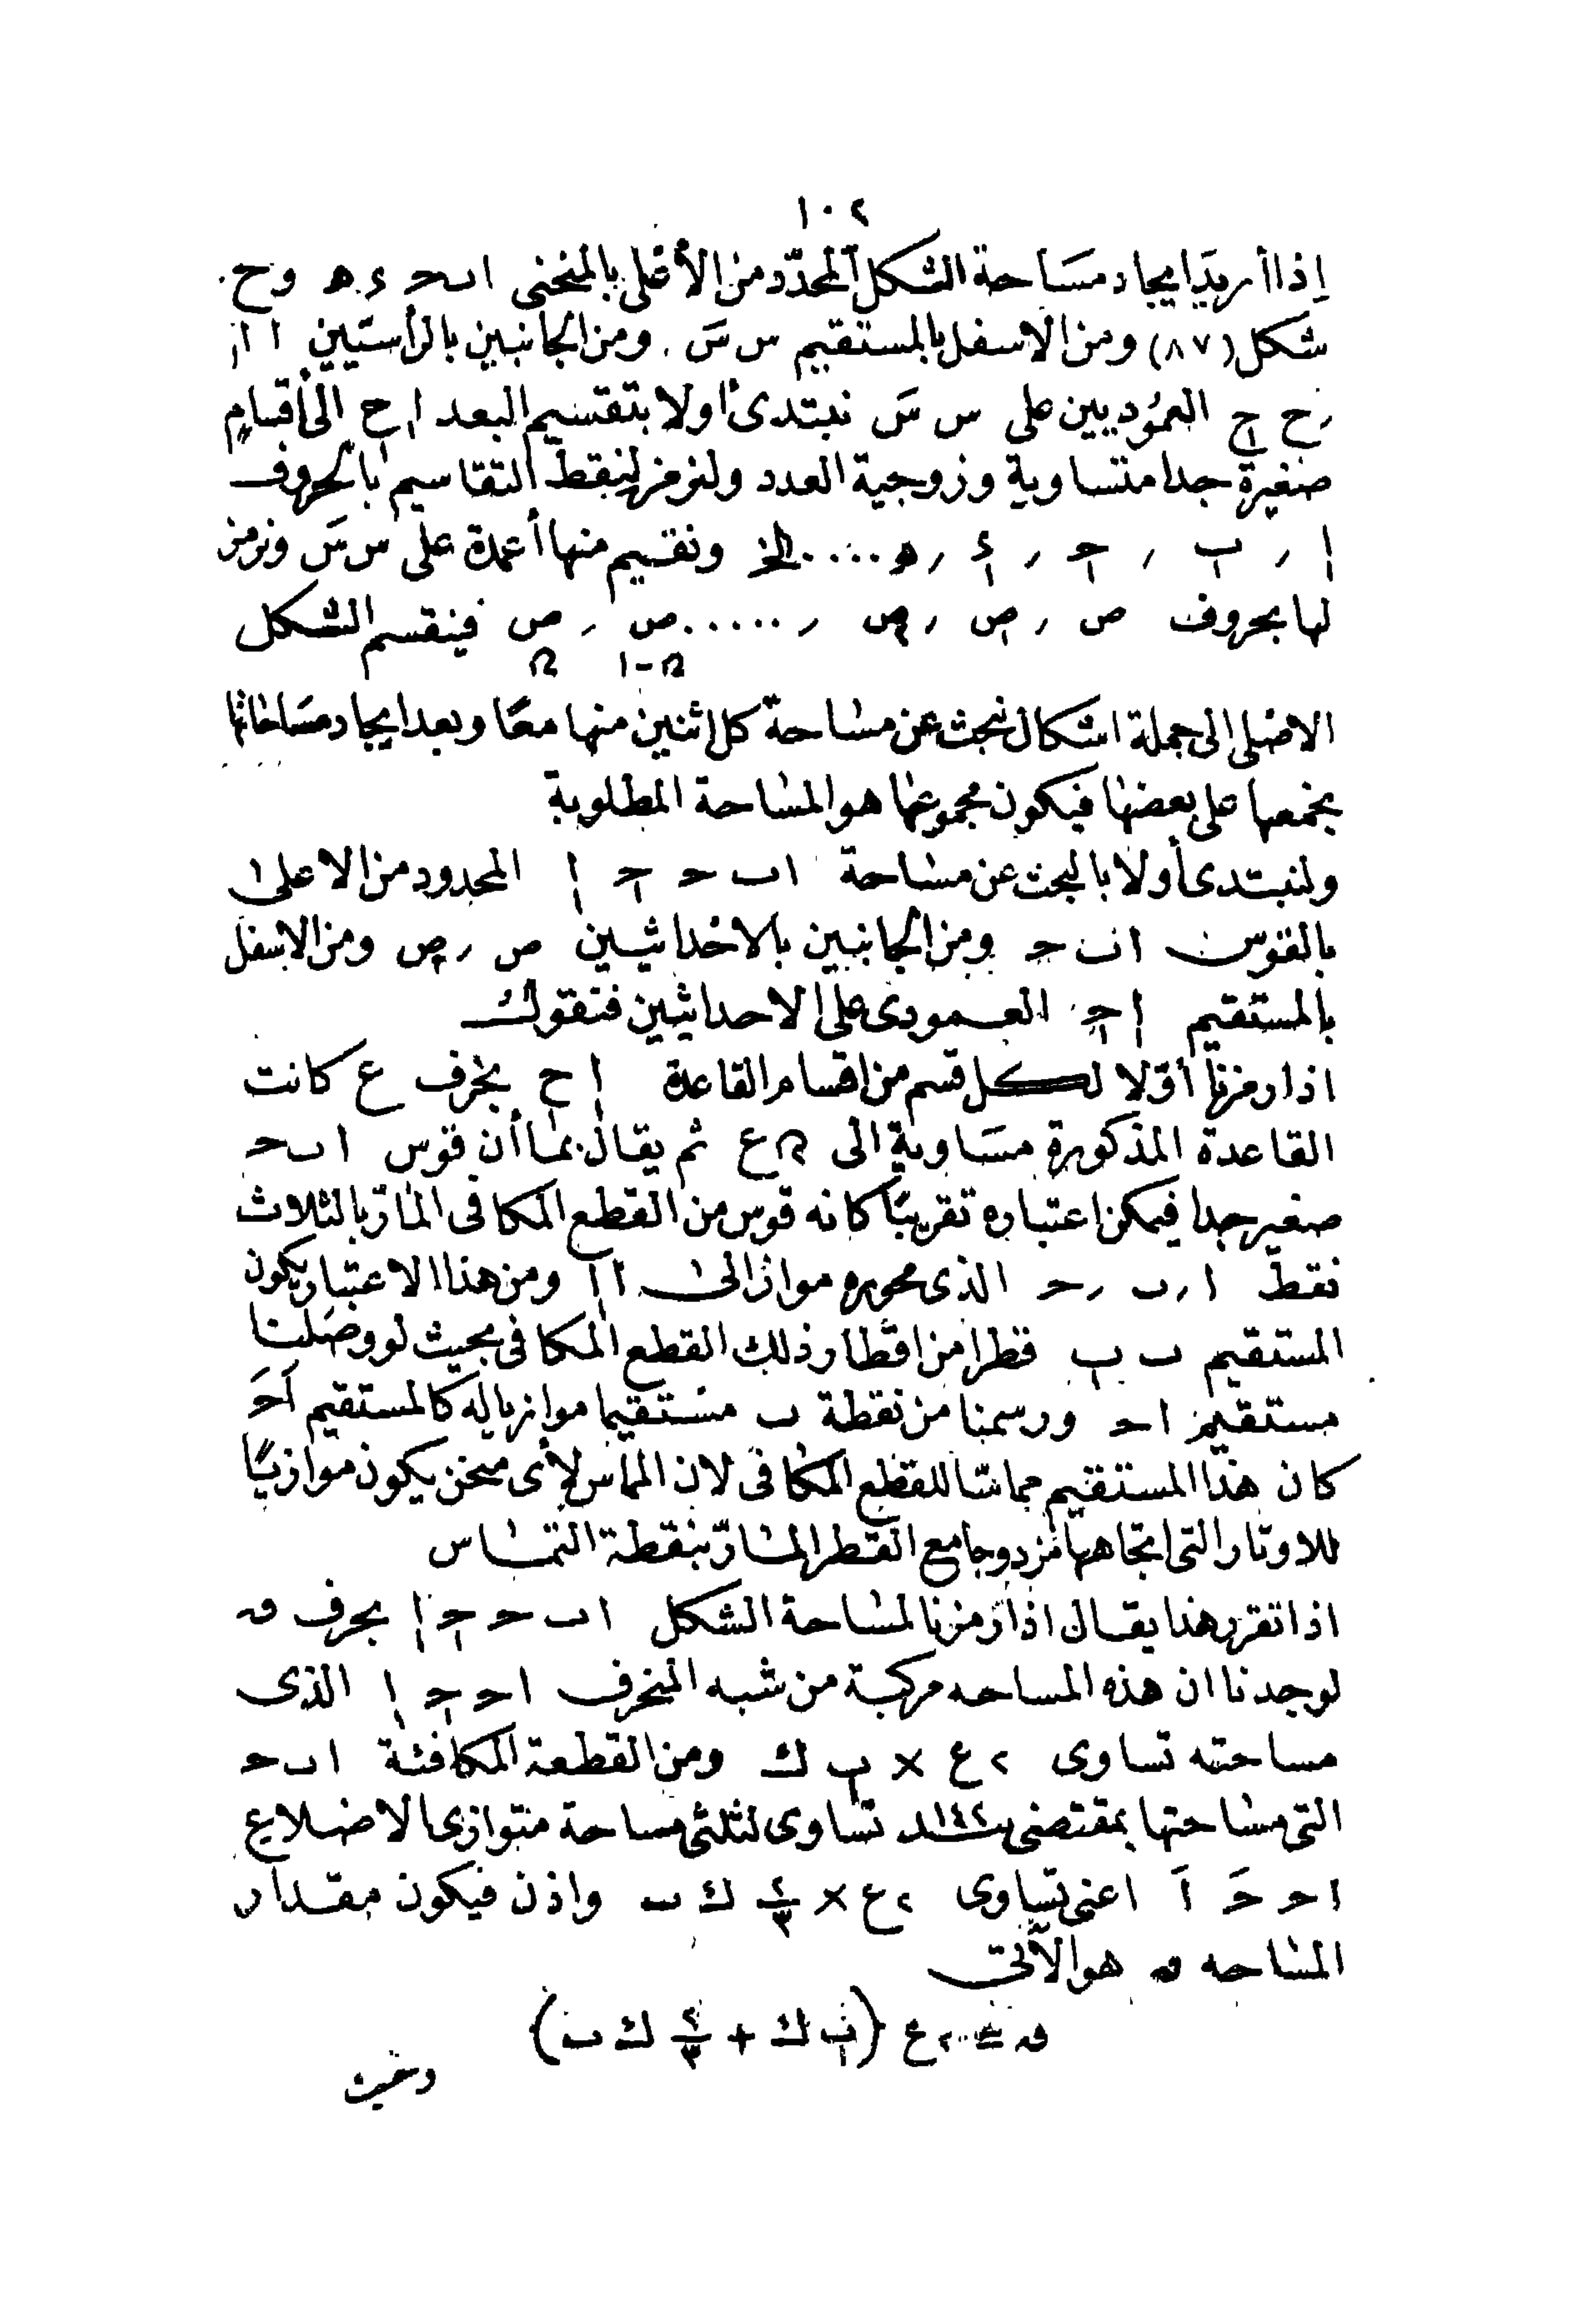 ١٠٢
إذا أريد ايجاد مساحة الشكل المحدّد من الأعلى بالمنحنى ا ب حـ ء هـ و ح
شكل (٨٧) ومن الاسفل بالمستقيم س سَ . ومن الجانبين بالرأسيين ا ا١
, ح ح١ العموديين على س سَ نبتدئ أولا بتقسيم البعد ا١ ح١ الى أقسام
صغيرة جدا متساوية وزوجية العدد ولنرمز لنقط التقاسيم بالحروف
ا١ , ب١ , حـ١ , ء١ , هـ١ .... الخ ونقيم منها أعمدة على س سَ ونرمز
لها بحروف ص , ص١ , ص٢ , ..... ص , ص فينقسم الشكل
ن-١ ن
الاصلى الى جملة اشكال نبحث عن مساحة كل اثنين منها معًا وبعد ايجاد مساحاتها
نجمعها على بعضها فيكون مجموعها هو المساحة المطلوبة
ولنبتدى أولا بالبحث عن مساحة ا ب حـ حـ١ ا١ المحدود من الاعلى
بالقوس ا ب حـ ومن الجانبين بالاحداثيين ص , ص٢ ومن الاسفل
بالمستقيم ا١ حـ١ العمودى على الاحداثيين فنقول
اذا رمزنا أوّلا لكل قسم من اقسام القاعدة ا١ ح١ بحرف ع كانت
القاعدة المذكورة مساوية الى ن ع ثم يقال بما أن قوس ا ب حـ
صغير جدا فيمكن اعتباره تقريبًا كانه قوس من القطع المكافى المارّ بالثلاث
نقط ا , ب , حـ الذى محوره مواز الى ا ا١ ومن هذا الاعتبار يكون
المستقيم ب ب١ قطرا من اقطار ذلك القطع المكافى بحيث لو وصلنا
مستقيم ا حـ ورسمنا من نقطة ب مستقيما موازيا له كالمستقيم اَ حـَ
كان هذا المستقيم مماسّا للقطع المكافى لان المماس لأى منحن يكون موازيًا
للاوتار التى اتجاهها مزدوجا مع القطر المارّ بنقطة التماس
اذا تقرر هذا يقال اذا رمزنا لمساحة الشكل ا ب حـ حـ١ ا١ بحرف ق
لوجدنا ان هذه المساحه مركبة من شبه المنحرف ا حـ حـ١ ا١ الذى
مساحته تساوى ٢ ع × ب١ ك ومن القطعة المكافئة ا ب حـ
التى مساحتها بمقتضى بند ١٤٢ تساوى لثلثى مساحة متوازى الاضلاع
ا حـ حـَ اَ اعنى تساوى ٢ ع × ٢/٣ ك ب واذن فيكون مقدار
المساحه ق هو الآتى
ق = ٢ ع (ب١ ك + ٢/٣ ك ب)
وحيث